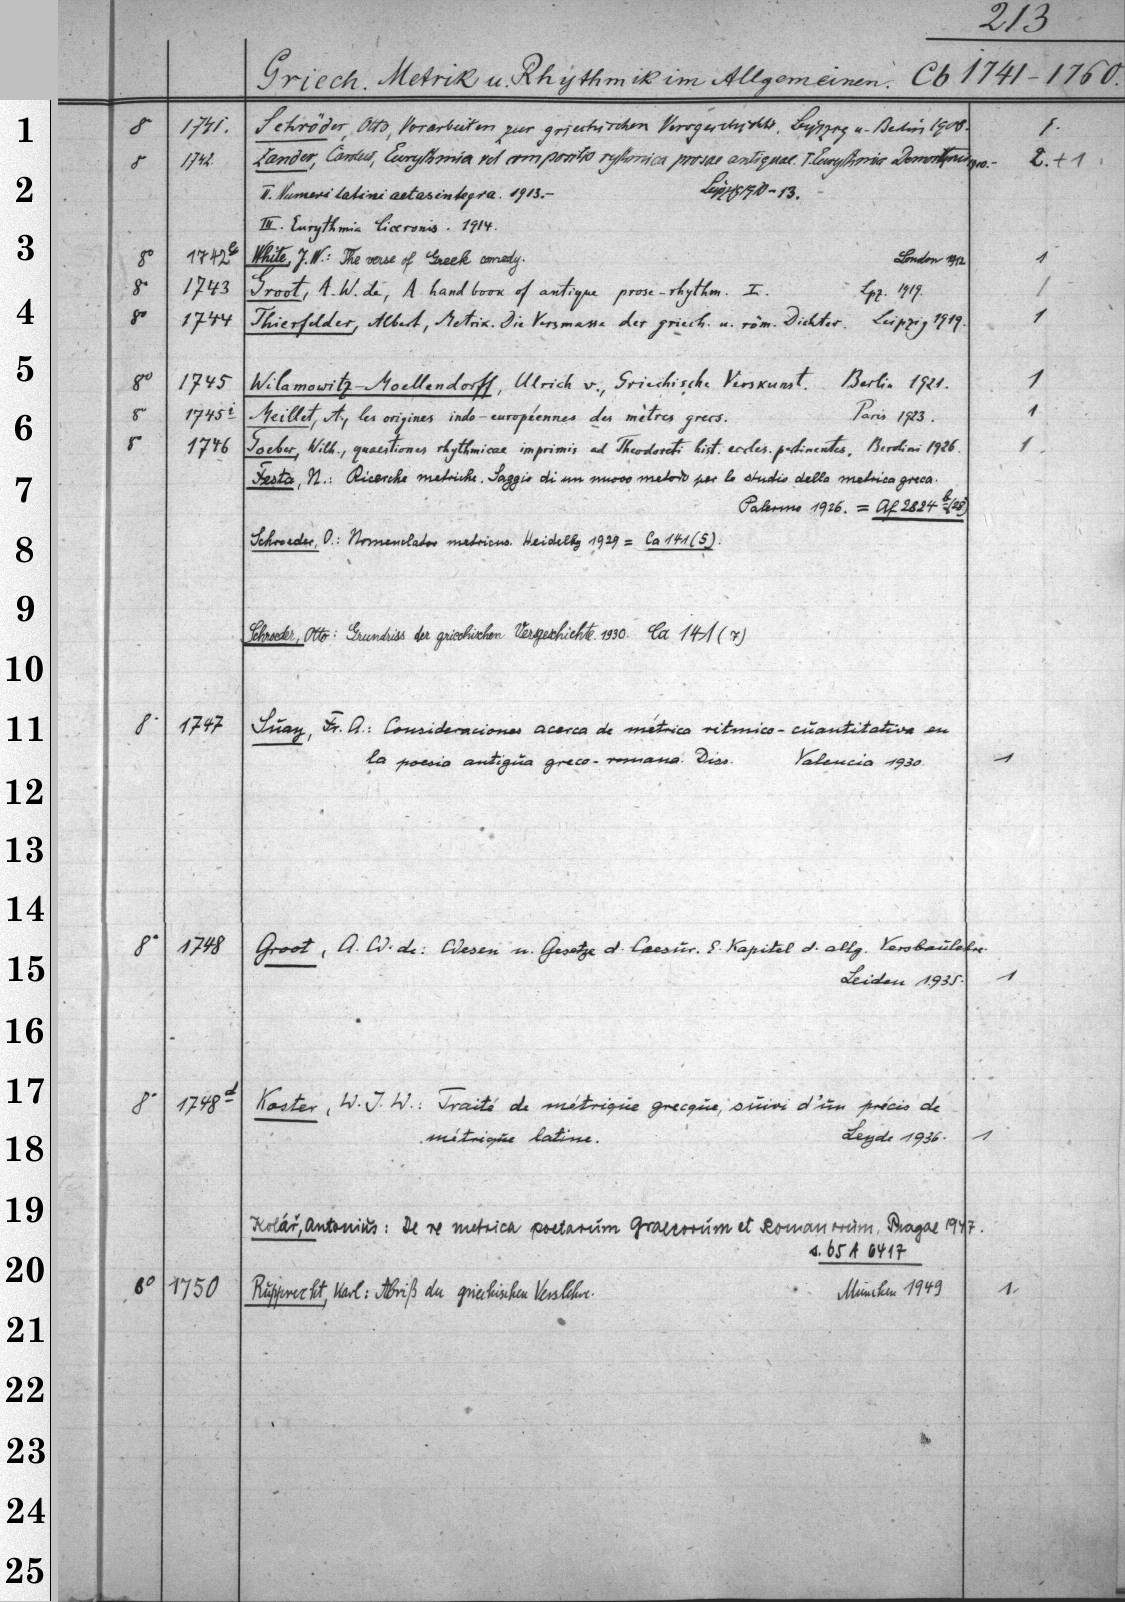 213
Griech. Metrik u. Rhythmik im Allgemeinen. Cb 1741-1760.
1 8 1741. Schröder, Otto, Vorarbeiten zur griechischen Versgeschichte. Leipzig u. Berlin 1908. 1.
8 1742. Zander, Carolus, Eurythmia vel compositio rythmica prosae antiquae. I. Eurythmia Demosthenis 1910.- 2. + 1
2 II. Numeri latini aetas integra. 1913.- Leipzig 1910-13.
III. Eurythmia Ciceronis. 1914.
3 8° 1742 b White, J. W.: The verse of Greek comedy. London 1912 1
8° 1743 Groot, A. W. de, A handbook of antique prose-rhythm. I. Lpz. 1919. 1
4 8° 1744 Thierfelder, Albert, Metrik. Die Versmasse der griech. u. röm. Dichter. Leipzig 1919. 1
5 8° 1745 Wilamowitz-Moellendorff, Ulrich v., Griechische Verskunst. Berlin 1921. 1
6 8° 1745 i Meillet, A., les origines indo-européennes des mètres grecs. Paris 1923. 1
8° 1746 Goeber, Wilh., quaestiones rhythmicae imprimis ad Theodoreti hist. eccles. pertinentes. Berolini 1926. 1.
7 Festa, N.: Ricerche metriche. Saggio di un nuovo metodo per lo studio della metrica greca.
Palermo 1926. = Af 2824 b (28)
8 Schroeder, O.: Nomenclator metricus. Heidelbg 1929 = Ca 141 (5).
9 Schroeder, Otto: Grundriss der griechischen Versgeschichte. 1930. Ca 141 (7)
10
11 8° 1747 Suay, Fr. A.: Consideraciones acerca de métrica ritmico-cuantitativa en
la poesia antigua greco-romana. Diss. Valencia 1930. 1
12
13
14
8° 1748 Groot, A. W. de: Wesen u. Gesetze d. Caesur. E. Kapitel d. allg. Versbaulehre.
15 Leiden 1935. 1
16
17 8° 1748 d Koster, W. J. W.: Traité de métrique grecque, suivi d'un précis de
18 métrique latine. Leyde 1936. 1
19 Kolář, Antonius: De re metrica poetarum Graecorum et Romanorum. Pragae 1947.
s. 65 A 6417
20 8° 1750 Rupprecht, Karl: Abriß der griechischen Verslehre. München 1949 1.
21
22
23
24
25